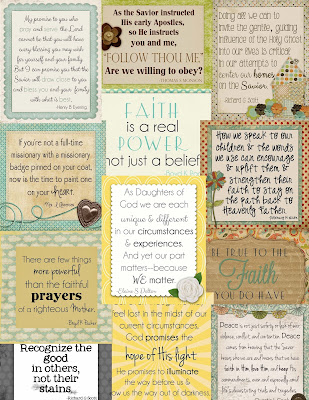 My promise to you who
pray and serve the Lord
cannot be that you will have
every blessing you may wish
for yourself and your family.
But I can promise you that the
Savior will draw close to you
and bless you and your family
with what is best.
Henry B Eyring
As the Savior instructed
His early Apostles,
so He instructs
you and me,
"FOLLOW THOU ME"
Are we willing to obey?
THOMAS S MONSON
Doing all we can to
invite the gentle, guiding
influence of the Holy Ghost
into our lives is critical
in our attempts to
center our homes
on the Savior.
Richard G Scott
FAITH
is a real
POWER
not just a belief
If you're not a full-time
missionary with a missionary
badge pinned on your coat,
now is the time to paint one
on your heart.
How we speak to our
children & the words
we use can encourage
& uplift them &
strengthen their
faith to stay on
the path back to
Heavenly Father.
As Daughters of
God we are each
unique & different
in our circumstances
& experiences.
And yet our part
matters—because
WE matter.
Elaine S Dalton
There are few things
more powerful
than the faithful
prayers
of a righteous Mother.
Boyd K Packer
BE TRUE TO THE
Faith
YOU DO HAVE
Recognize the
good
in others,
not their
stains.
Richard G Scott
feel lost in the midst of our
current circumstances,
God promises the
hope of His light
He promises to illuminate
the way before us &
show us the way out of darkness.